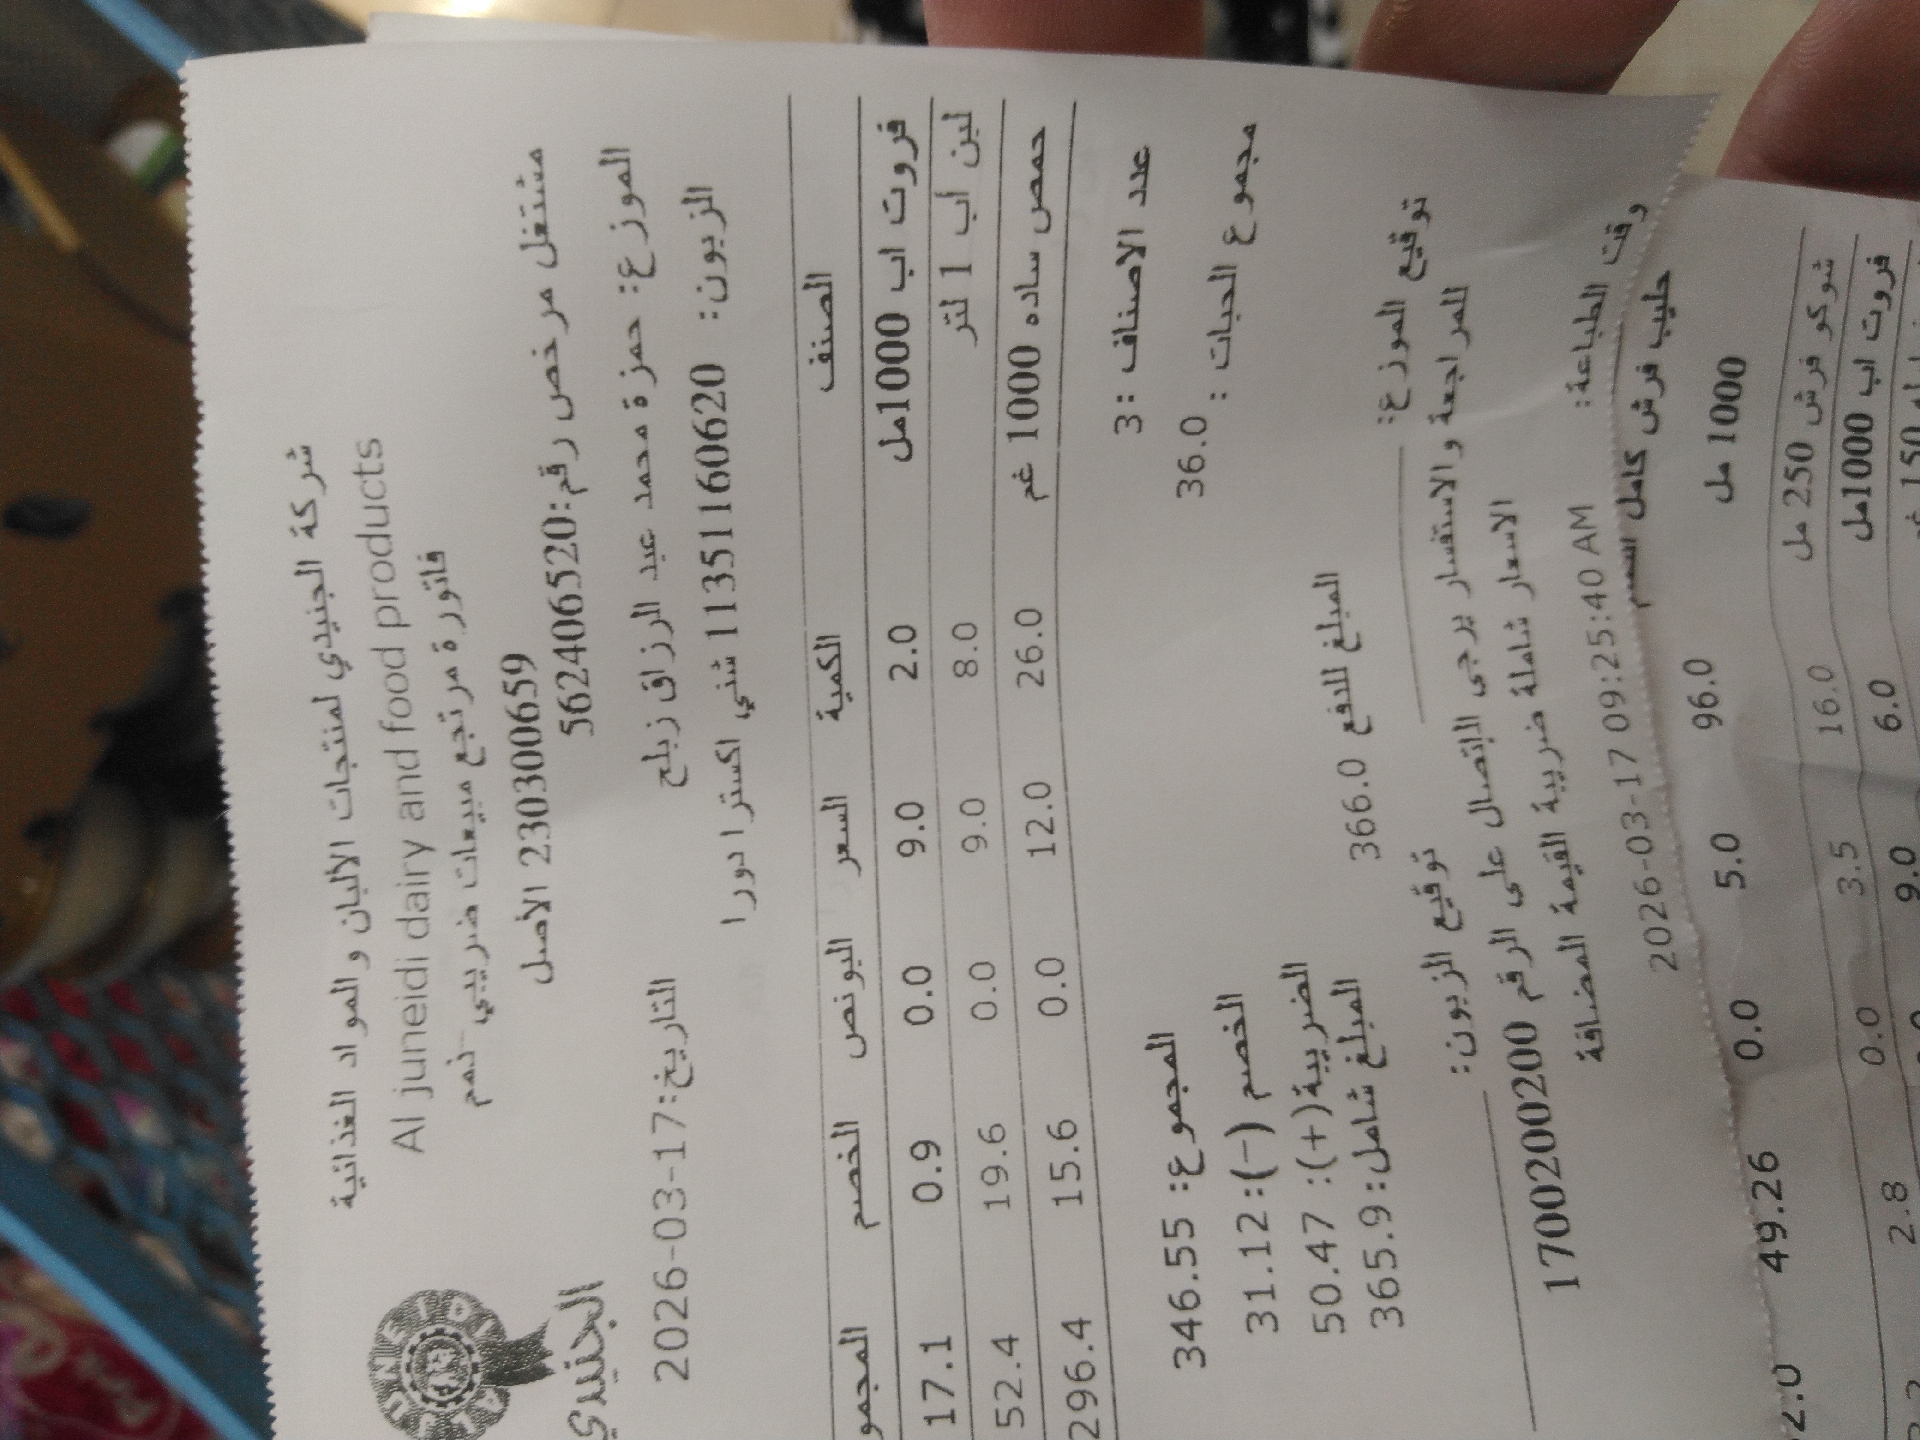 JUNEIDI
الجنيدي
شركة الجنيدي لمنتجات الالبان والمواد الغذائية
Al juneidi dairy and food products
فاتورة مرتجع مبيعات ضريبي-نمم
230300659 الأصل
مشتغل مرخص رقم:562406520
التاريخ:2026-03-17
الموزع: حمزة محمد عبد الرزاق زبلح
الزبون: 11351160620 شني اكسترا دورا
الصنف الكمية السعر البونص الخصم المجمو
فروت اب 1000مل 2.0 9.0 0.0 0.9 17.1
لبن أب 1 لتر 8.0 9.0 0.0 19.6 52.4
حمص ساده 1000 غم 26.0 12.0 0.0 15.6 296.4
عدد الاصناف :3
المجموع: 346.55
مجموع الحبات : 36.0
الخصم (-): 31.12
الضريبة(+): 50.47
المبلغ شامل: 365.9
المبلغ للدفع 366.0
توقيع الموزع:
توقيع الزبون:
للمراجعة والاستفسار يرجى الإتصال على الرقم 1700200200
الاسعار شاملة ضريبة القيمة المضافة
وقت الطباعة: 2026-03-17 09:25:40 AM
حليب فرش كامل الدسم
1000 مل 96.0 5.0 0.0 49.26 2.0
شوكو فرش 250 مل 16.0 3.5 0.0 2.8
فروت اب 1000مل 6.0 9.0
150